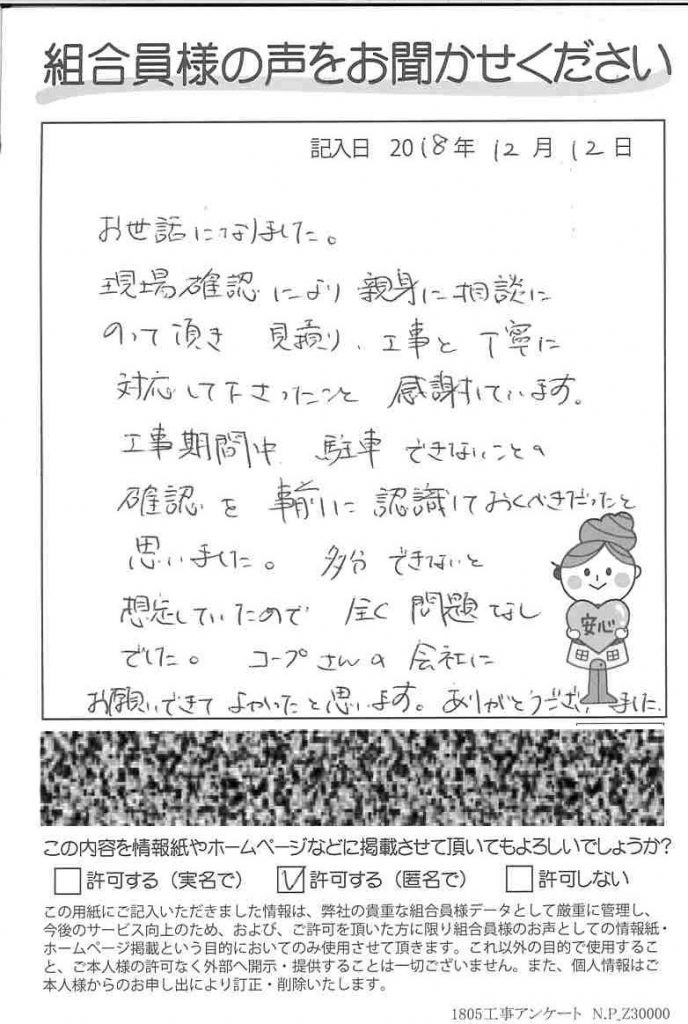 組合員様の声をお聞かせください
記入日 2018年 12月 12日
お世話になりました。
現場確認により親身に相談に
のって頂き 見積り、工事と丁寧に
対応して下さったこと 感謝しています。
工事期間中 駐車できないことの
確認を事前に認識しておくべきだったと
思いました。 多分できないと
想定していたので 全く問題なし
でした。 コープさんの会社に
お願いできてよかったと思います。ありがとうございました。
安心
この内容を情報紙やホームページなどに掲載させて頂いてもよろしいでしょうか?
許可する (実名で) 許可する (匿名で) 許可しない
この用紙にご記入いただきました情報は、弊社の貴重な組合員様データとして厳重に管理し、
今後のサービス向上のため、および、ご許可を頂いた方に限り組合員様のお声としての情報紙・
ホームページ掲載という目的においてのみ使用させて頂きます。これ以外の目的で使用するこ
と、ご本人様の許可なく外部へ開示・提供することは一切ございません。また、個人情報はご
本人様からのお申し出により訂正・削除いたします。
1805工事アンケート N.P_Z30000